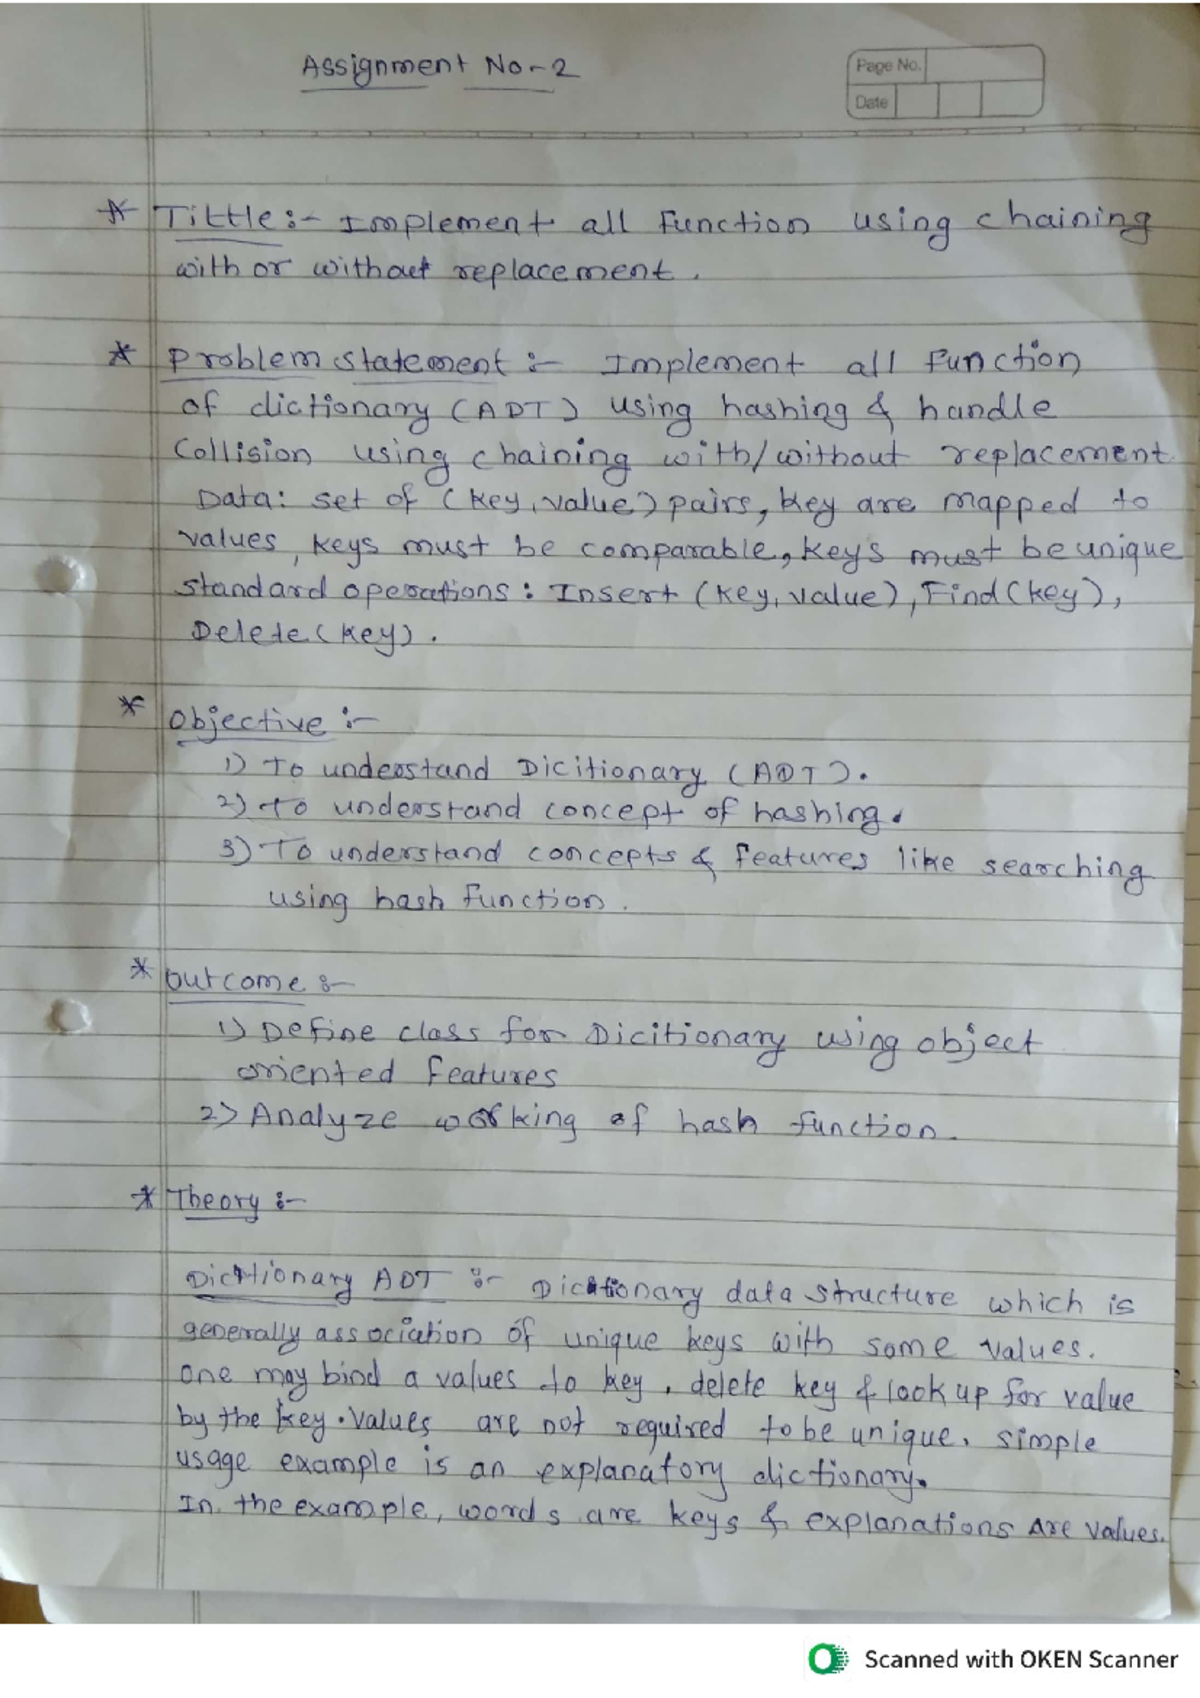 Assignment No-2
Page No.
Date
* Tittle :- Implement all Function using chaining
with or without replacement.
* Problem statement :- Implement all Function
of dictionary (ADT) using hashing & handle
Collision using chaining with/without replacement.
Data: set of (key, value) pairs, key are mapped to
values, keys must be comparable, keys must be unique
standard operations: Insert (key, value), Find(key),
Delete(key).
* Objective :-
1) To understand Dicitionary (ADT).
2) To understand concept of hashing.
3) To understand concepts & features like searching
using hash function.
* Outcome :-
1) Define class for Dicitionary using object
oriented features
2) Analyze working of hash function.
* Theory :-
Dictionary ADT :- Dictionary data structure which is
generally association of unique keys with some values.
One may bind a values to key, delete key & look up for value
by the key. Values are not required to be unique. simple
usage example is an explanatory dictionary.
In the example, words are keys & explanations are values.
Scanned with OKEN Scanner